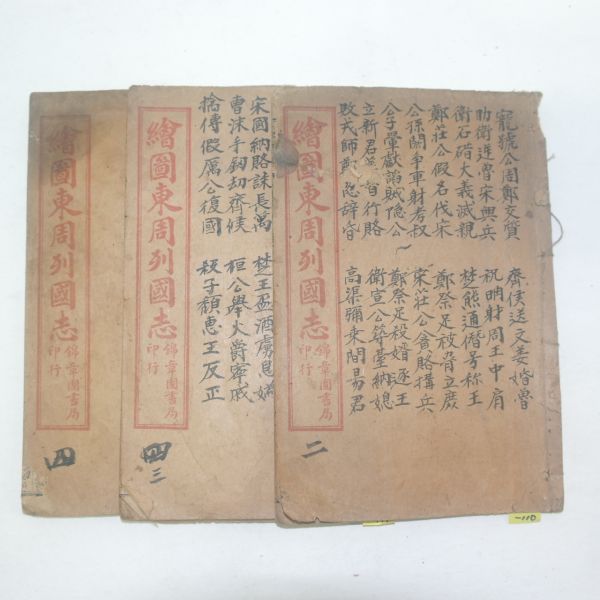 寵虢公周鄭交質
助衛逆魯宋興兵
衛石碏大義滅親
鄭莊公假名伐宋
公孫閼争車射考叔
公子翬獻諂賊隱公
立新君華督行賂
敗戎師鄭忽辭昏
齊侯送文姜婚魯
祝聃射周王中肩
楚熊通僭号称王
鄭祭足被脅立庶
宋莊公會賂搆兵
鄭祭足殺婿逐王
衛宣公築臺納媳
高渠彌乘間易君
繪圖東周列國志
錦章圖書局
印行
二
-110
宋國納賂誅長萬
曹沫手劍刼齊侯
擒傅假厲公復國
楚王盃酒虜息媯
桓公舉火爵寧戚
殺子頹惠王反正
繪圖東周列國志
錦章圖書局
印行
四
三
繪圖東周列國志
錦章圖書局
印行
四